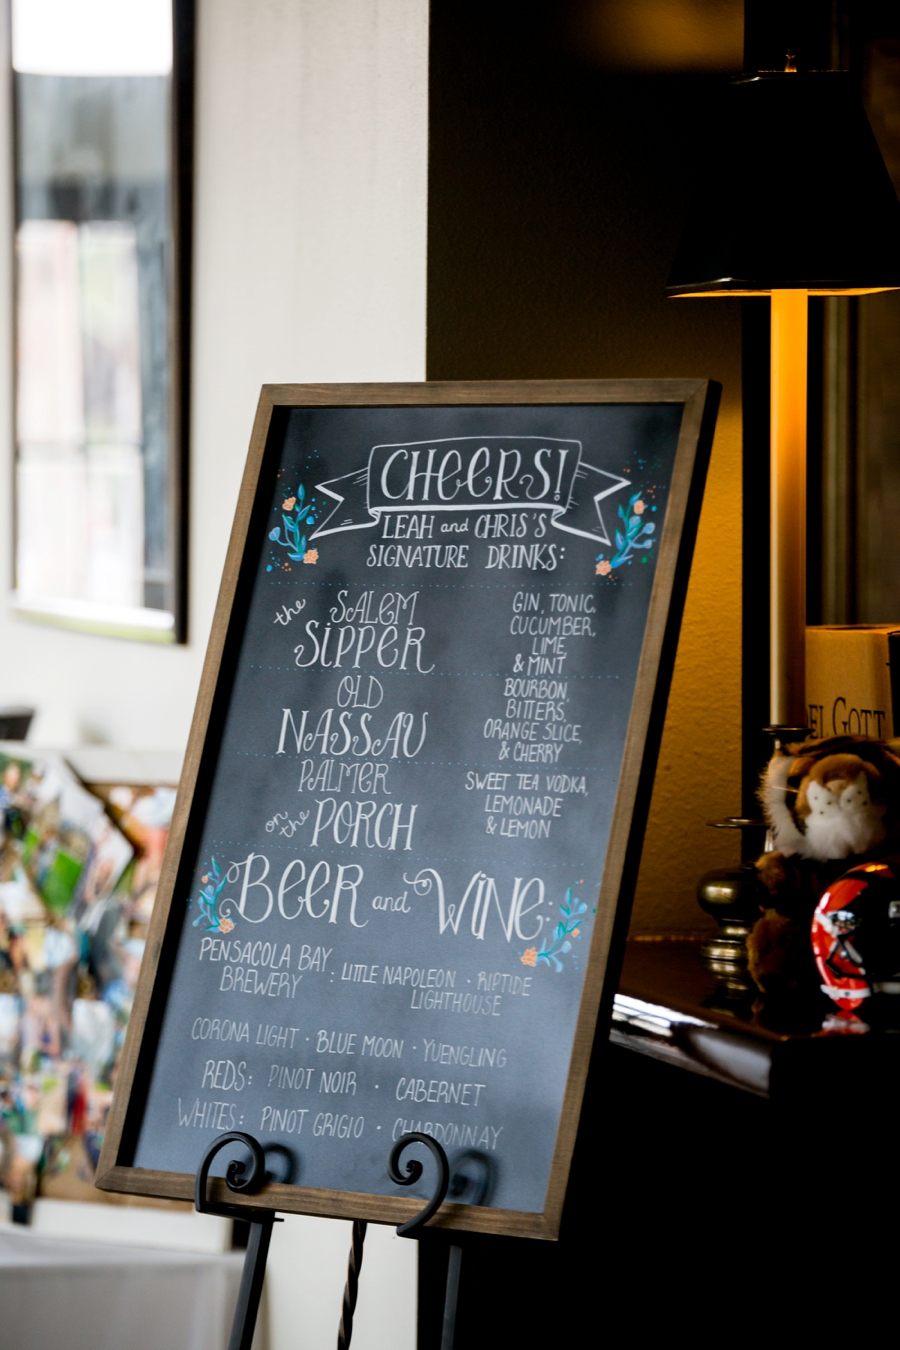 CHEERS!
LEAH and CHRIS'S
SIGNATURE DRINKS:
the SALEM
SIPPER
GIN, TONIC,
CUCUMBER,
LIME,
& MINT
OLD
NASSAU
BOURBON
BITTERS,
ORANGE SLICE,
& CHERRY
PALMER
on the PORCH
SWEET TEA VODKA,
LEMONADE
& LEMON
BEER and WINE:
PENSACOLA BAY
BREWERY : LITTLE NAPOLEON · RIPTIDE
LIGHTHOUSE
CORONA LIGHT · BLUE MOON · YUENGLING
REDS: PINOT NOIR · CABERNET
WHITES: PINOT GRIGIO · CHARDONNAY
EL GOTT